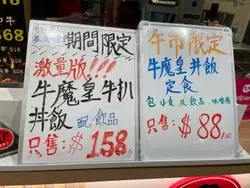 期間限定
激量版!!!
牛魔皇牛扒
丼飯 配飲品
只售:$158
午市限定
牛魔皇丼飯
定食
包小食及飲品、味噌湯
只售:$88